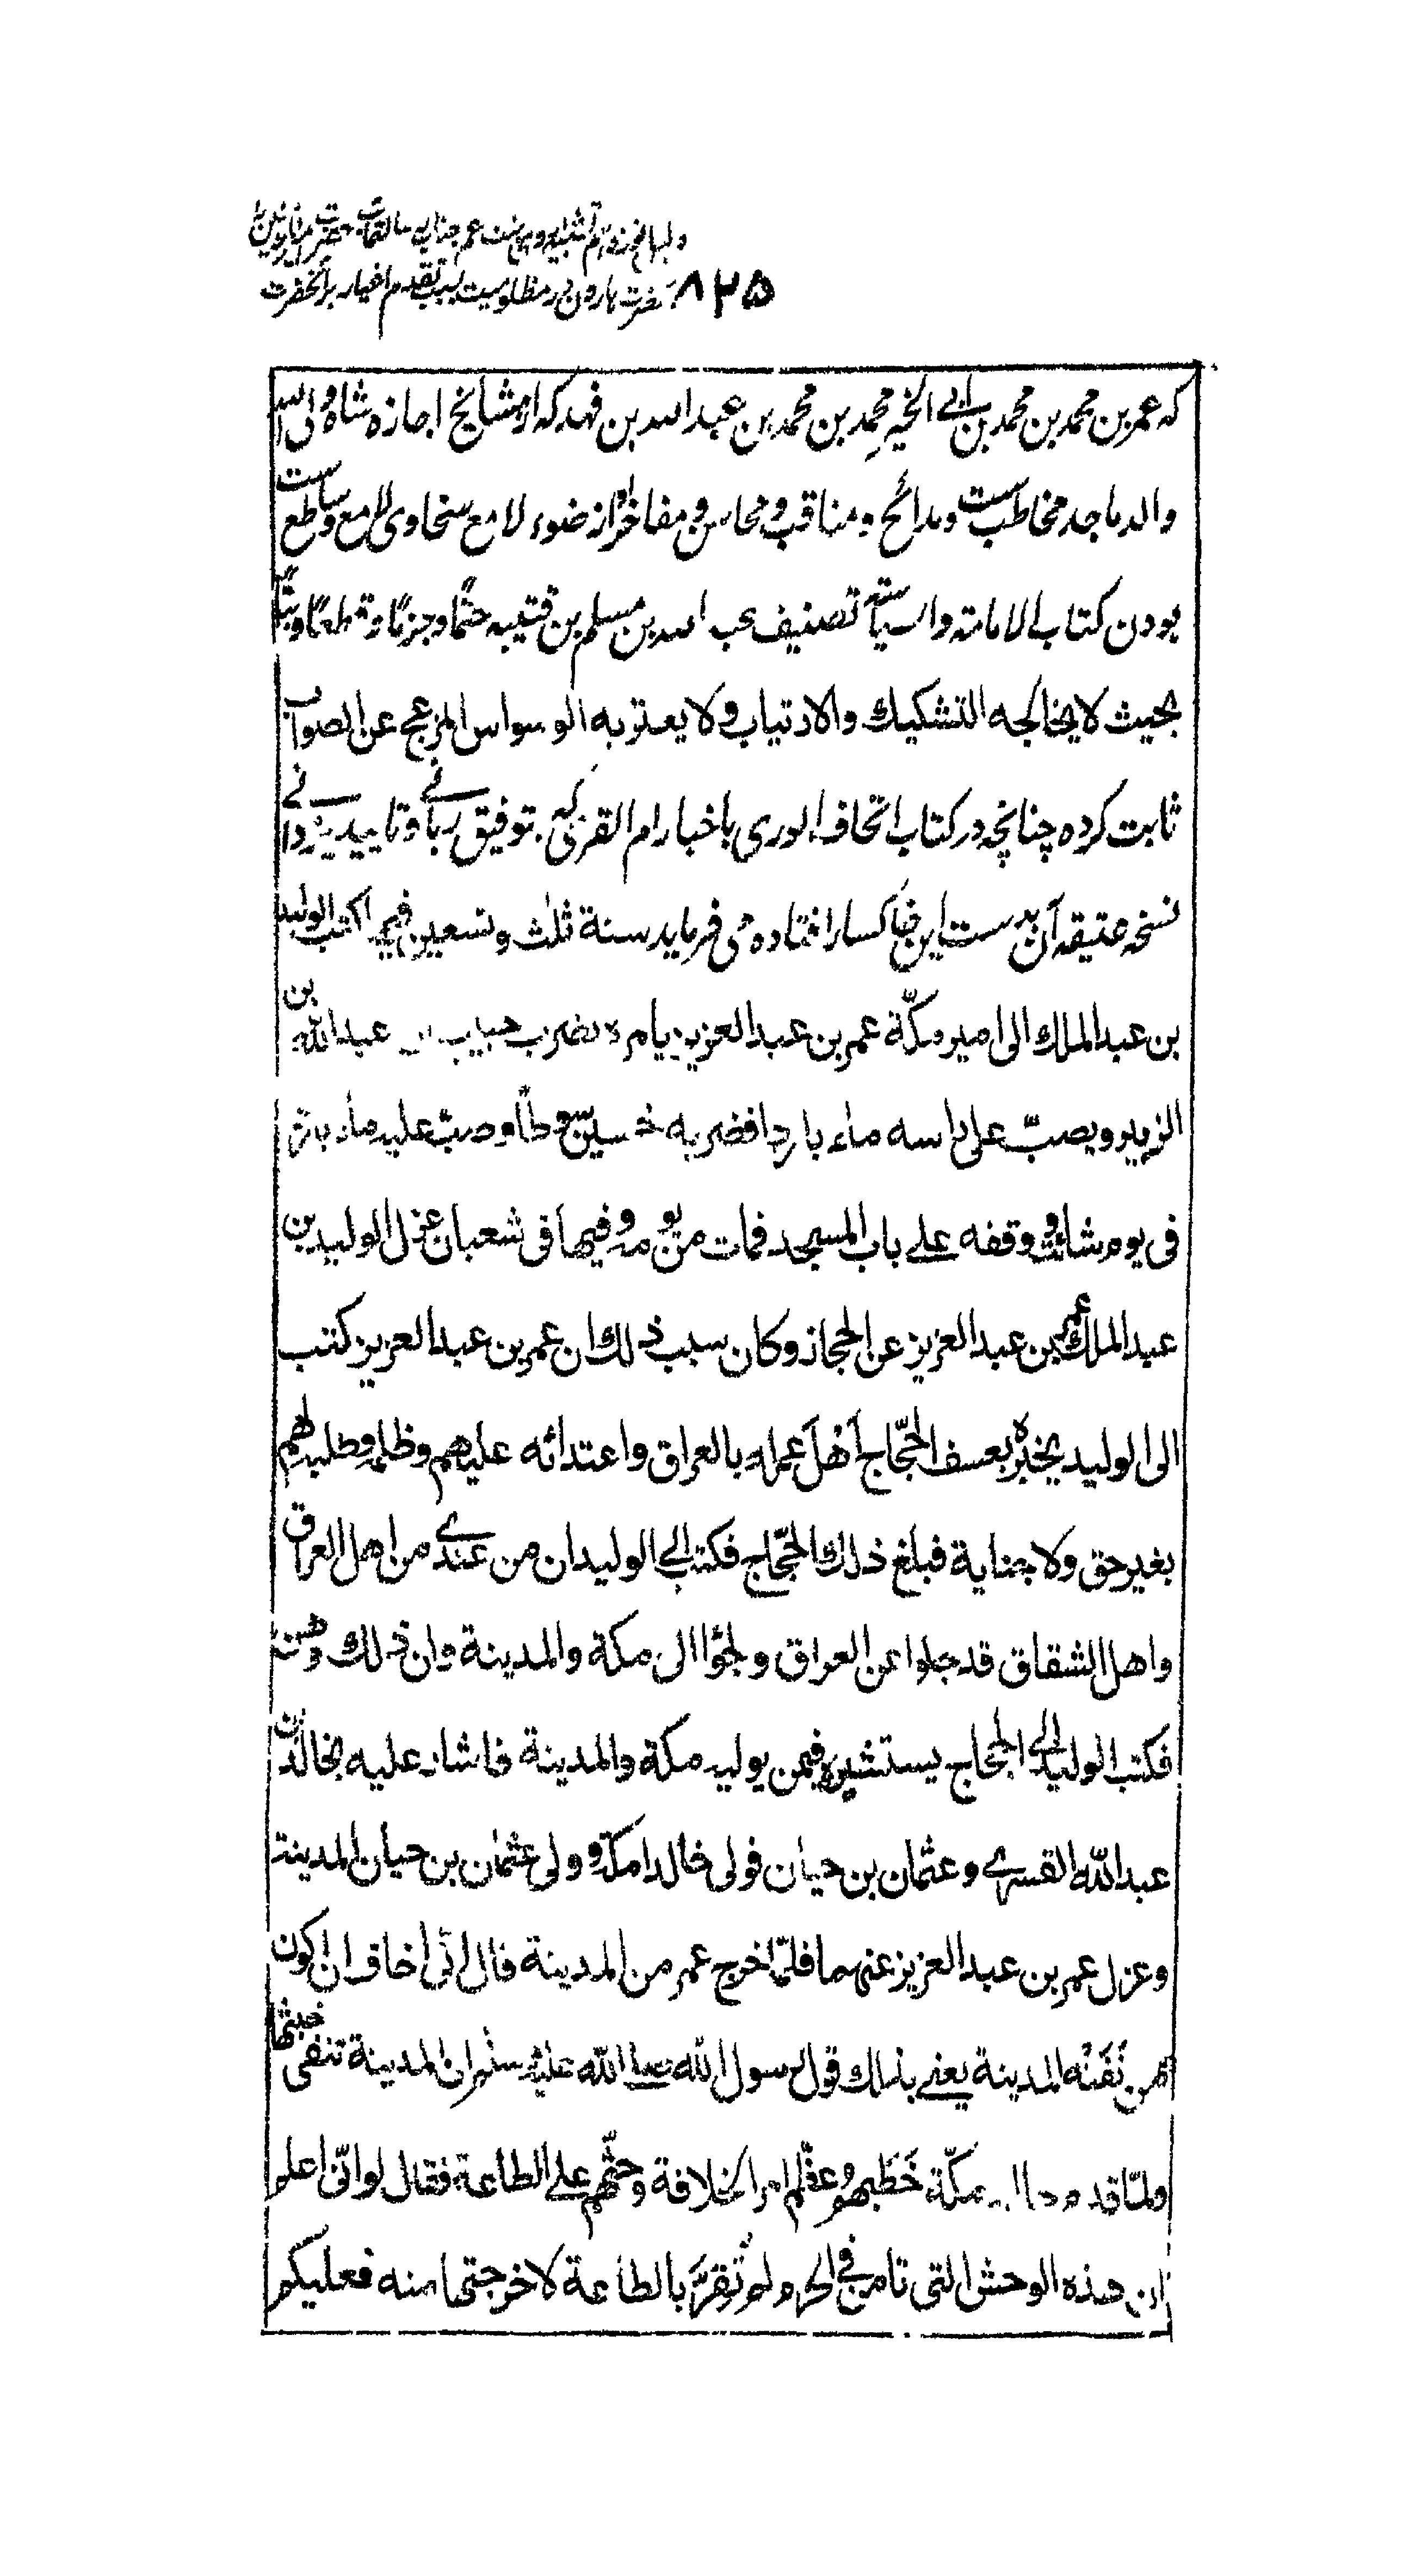 ۸۲۵
حضرت هارون در مظلومیت بسبب تقدم اخیار بر آنحضرت
که عمر بن محمد بن محمد بن ابی الخیر محمد بن محمد بن عبد الله بن فهد که از مشایخ اجازه شاه ولی الله
والد ماجد مخاطب ست و مدائح و مناقب و محاسن و مفاخر او از ضوء لامع سخاوی لامع و ساطع ست
بودن کتاب الامامة والسیاسته تصنیف عبد الله بن مسلم بن قتیبه حتمًا و جزمًا و قطعًا و بتًّا
بحیث لا یخالجه التشکیك والارتیاب ولا یعتریه الوسواس المزعج عن الصواب
ثابت کرده چنانچه در کتاب اتحاف الوری باخبار ام القری که بتوفیق ربانے و تایید یزدانے
نسخه عتیقه آن بدست این خاکسار افتاده می فرماید سنة ثلث وتسعین فیها کتب الولید
بن عبد الملك الی امیر مکّة عمر بن عبد العزیز یامره بضرب خبیب بن عبد الله بن
الزبیر ویصبّ علی راسه ماء باردا فضربه خمسین سوطًا وصبّ علیه ماء باردا
فی یوم شات و وقفه علے باب المسجد فمات من یومه وفیها فی شعبان عزل الولید بن
عبد الملك عمر بن عبد العزیز عن الحجاز وکان سبب ذلك ان عمر بن عبد العزیز کتب
الی الولید یخبره بعسف الحجّاج اَهْلَ عمله بالعراق واعتدائه علیهم وظلمه لهم
بغیر حق ولا جنایة فبلغ ذلك الحجّاج فکتب الی الولید ان من عندے من اهل العراق
واهل الشقاق قد جلوا عن العراق ولجؤا الی مکة والمدینة وان ذلك وهن
فکتب الولید الی الحجاج یستشیره فیمن یولیه مکة والمدینة فاشار علیه بخالد بن
عبد الله القسرے وعثمان بن حیان فولی خالدا مکة و ولی عثمان بن حیان المدینة
وعزل عمر بن عبد العزیز عنهما فلمّا خرج عمر من المدینة قال انّی اخاف ان اکون
ممن نَفَتْه المدینة یعنے بذلك قول رسول الله صلے الله علیه وسلم ان المدینة تنفی خبثها
ولمّا قدم مکّة خَطَبهم وعظّم امر الخلافة وحثّهم علی الطاعة فقال لو انّی اعلم
ان هذه الوحش التی تامن فی الحرم لو لم تُقِرَّ بالطاعة لاخرجتها منه فعلیکم